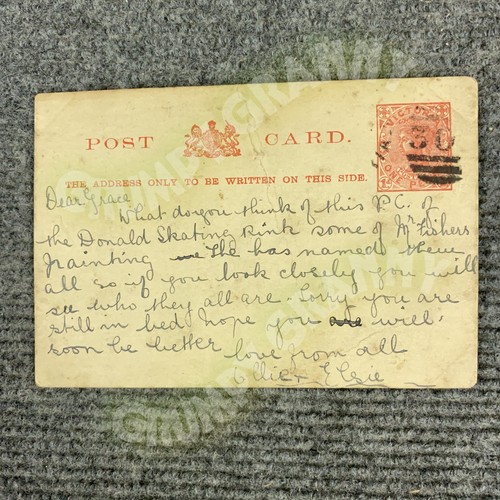 POST CARD.
THE ADDRESS ONLY TO BE WRITTEN ON THIS SIDE.
Dear Grace
What do you think of this P.C. of
the Donald Skating Rink some of Mr Fishers
painting He has named them
all so if you look closely you will
see who they all are. Sorry you are
still in bed hope you will
soon be better
love from all
Elsie
GRUMPY GRAMMY
GRUMPY GRAMMY
GRUMPY GRAMMY